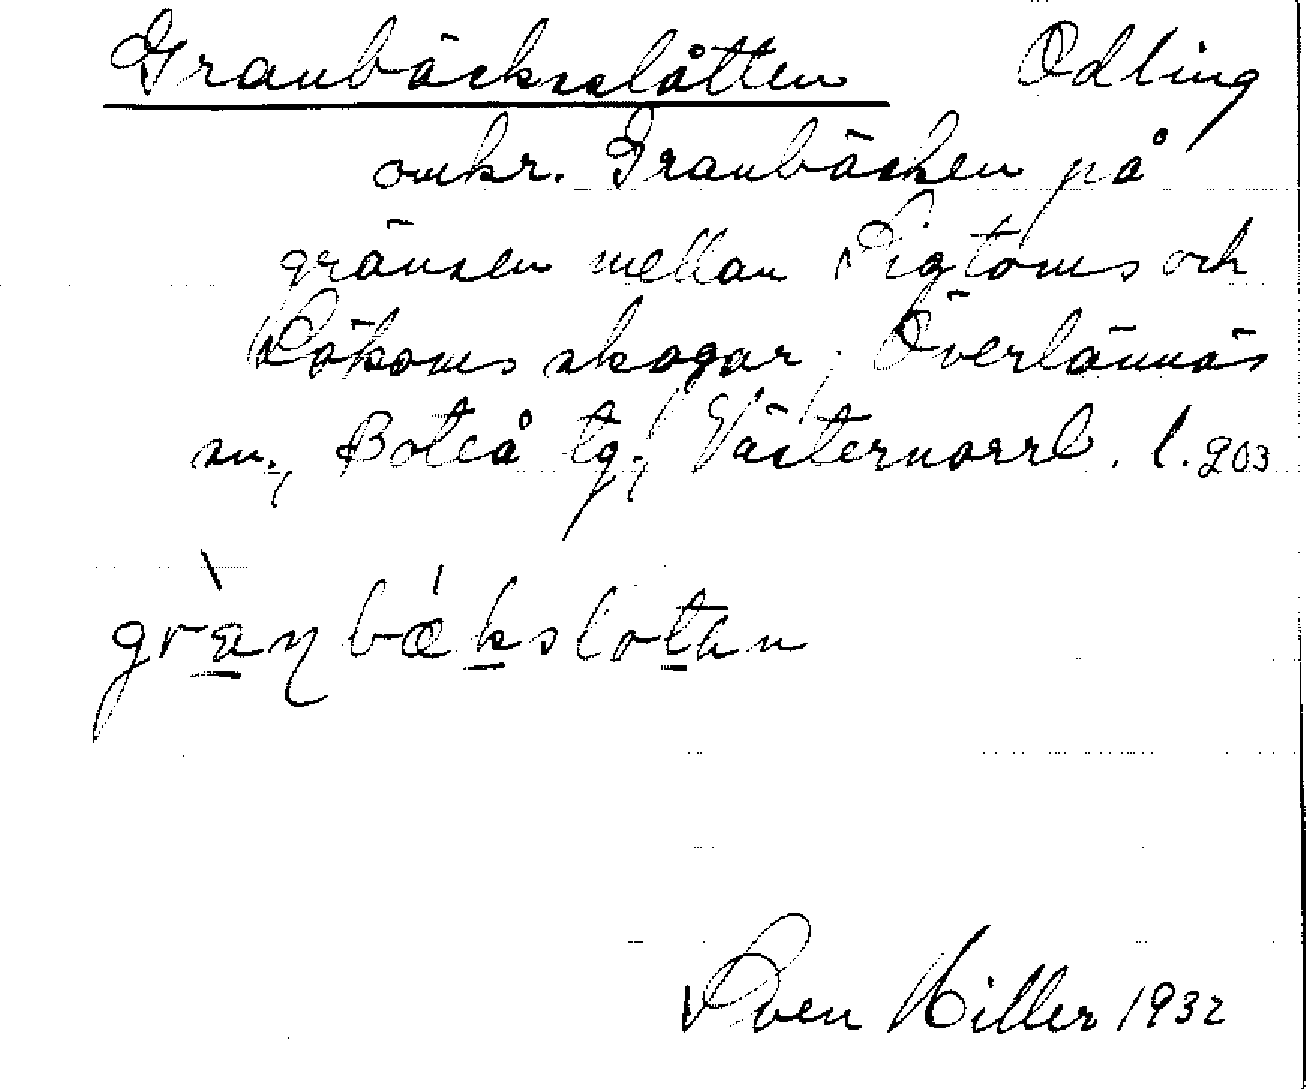 Granbäcksslåtten Odling
omkr. Granbäcken på
gränsen mellan Sigtoms och
Lökoms skogar, Överlännäs
sn., Boteå tg., Västernorrl. l. 203
grànbækslotən
Sven Hiller 1932